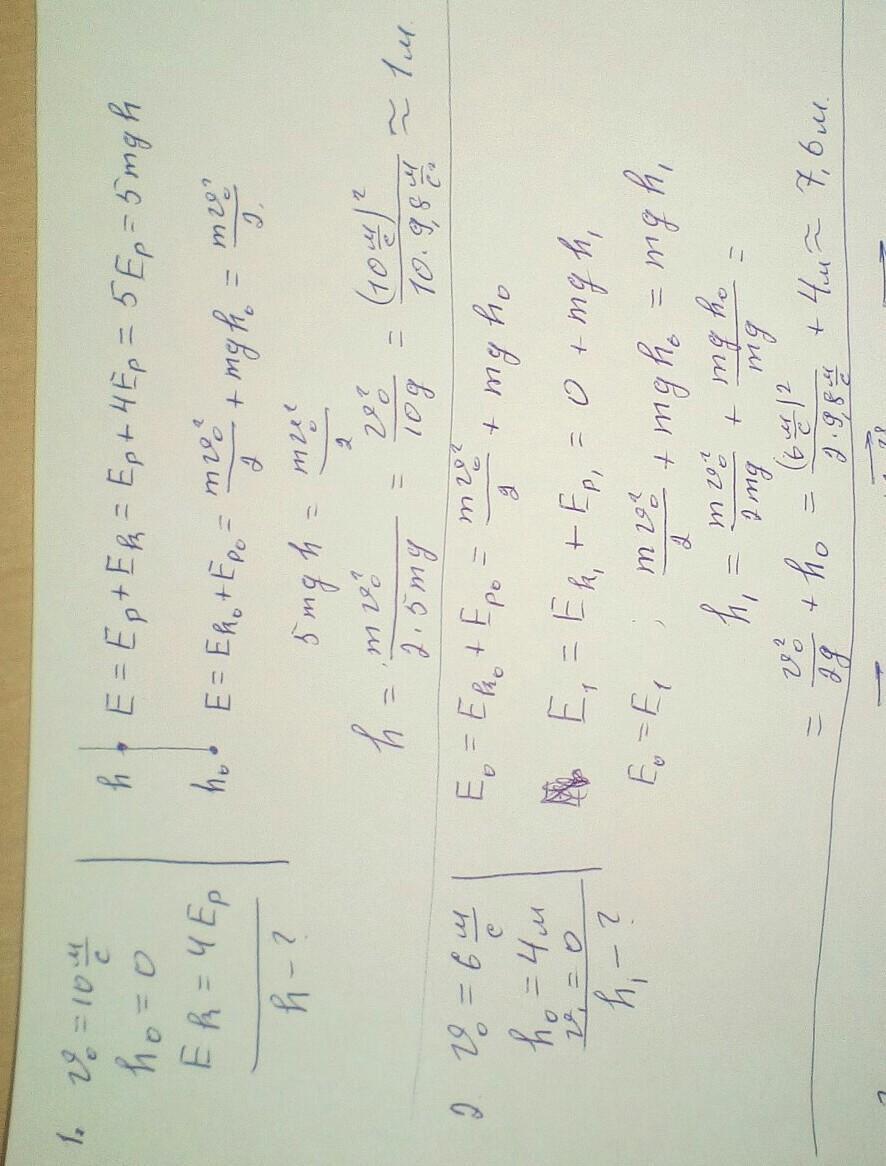 1. v₀ = 10 м/с
h₀ = 0
Eк = 4Eр
h - ?
h
h₀
E = Eр + Eк = Eр + 4Eр = 5Eр = 5mgh
E = Eк₀ + Eр₀ = mv₀²/2 + mgh₀ = mv₀²/2
5mgh = mv₀²/2
h = mv₀²/(2·5mg) = v₀²/(10g) = (10 м/с)²/(10·9,8 м/с²) ≈ 1м.
2. v₀ = 6 м/с
h₀ = 4м
v₁ = 0
h₁ - ?
E₀ = Eк₀ + Eр₀ = mv₀²/2 + mgh₀
E₁ = Eк₁ + Eр₁ = 0 + mgh₁
E₀ = E₁ ; mv₀²/2 + mgh₀ = mgh₁
h₁ = mv₀²/(2mg) + mgh₀/mg =
= v₀²/(2g) + h₀ = (6 м/с)²/(2·9,8 м/с) + 4м ≈ 7,6м.